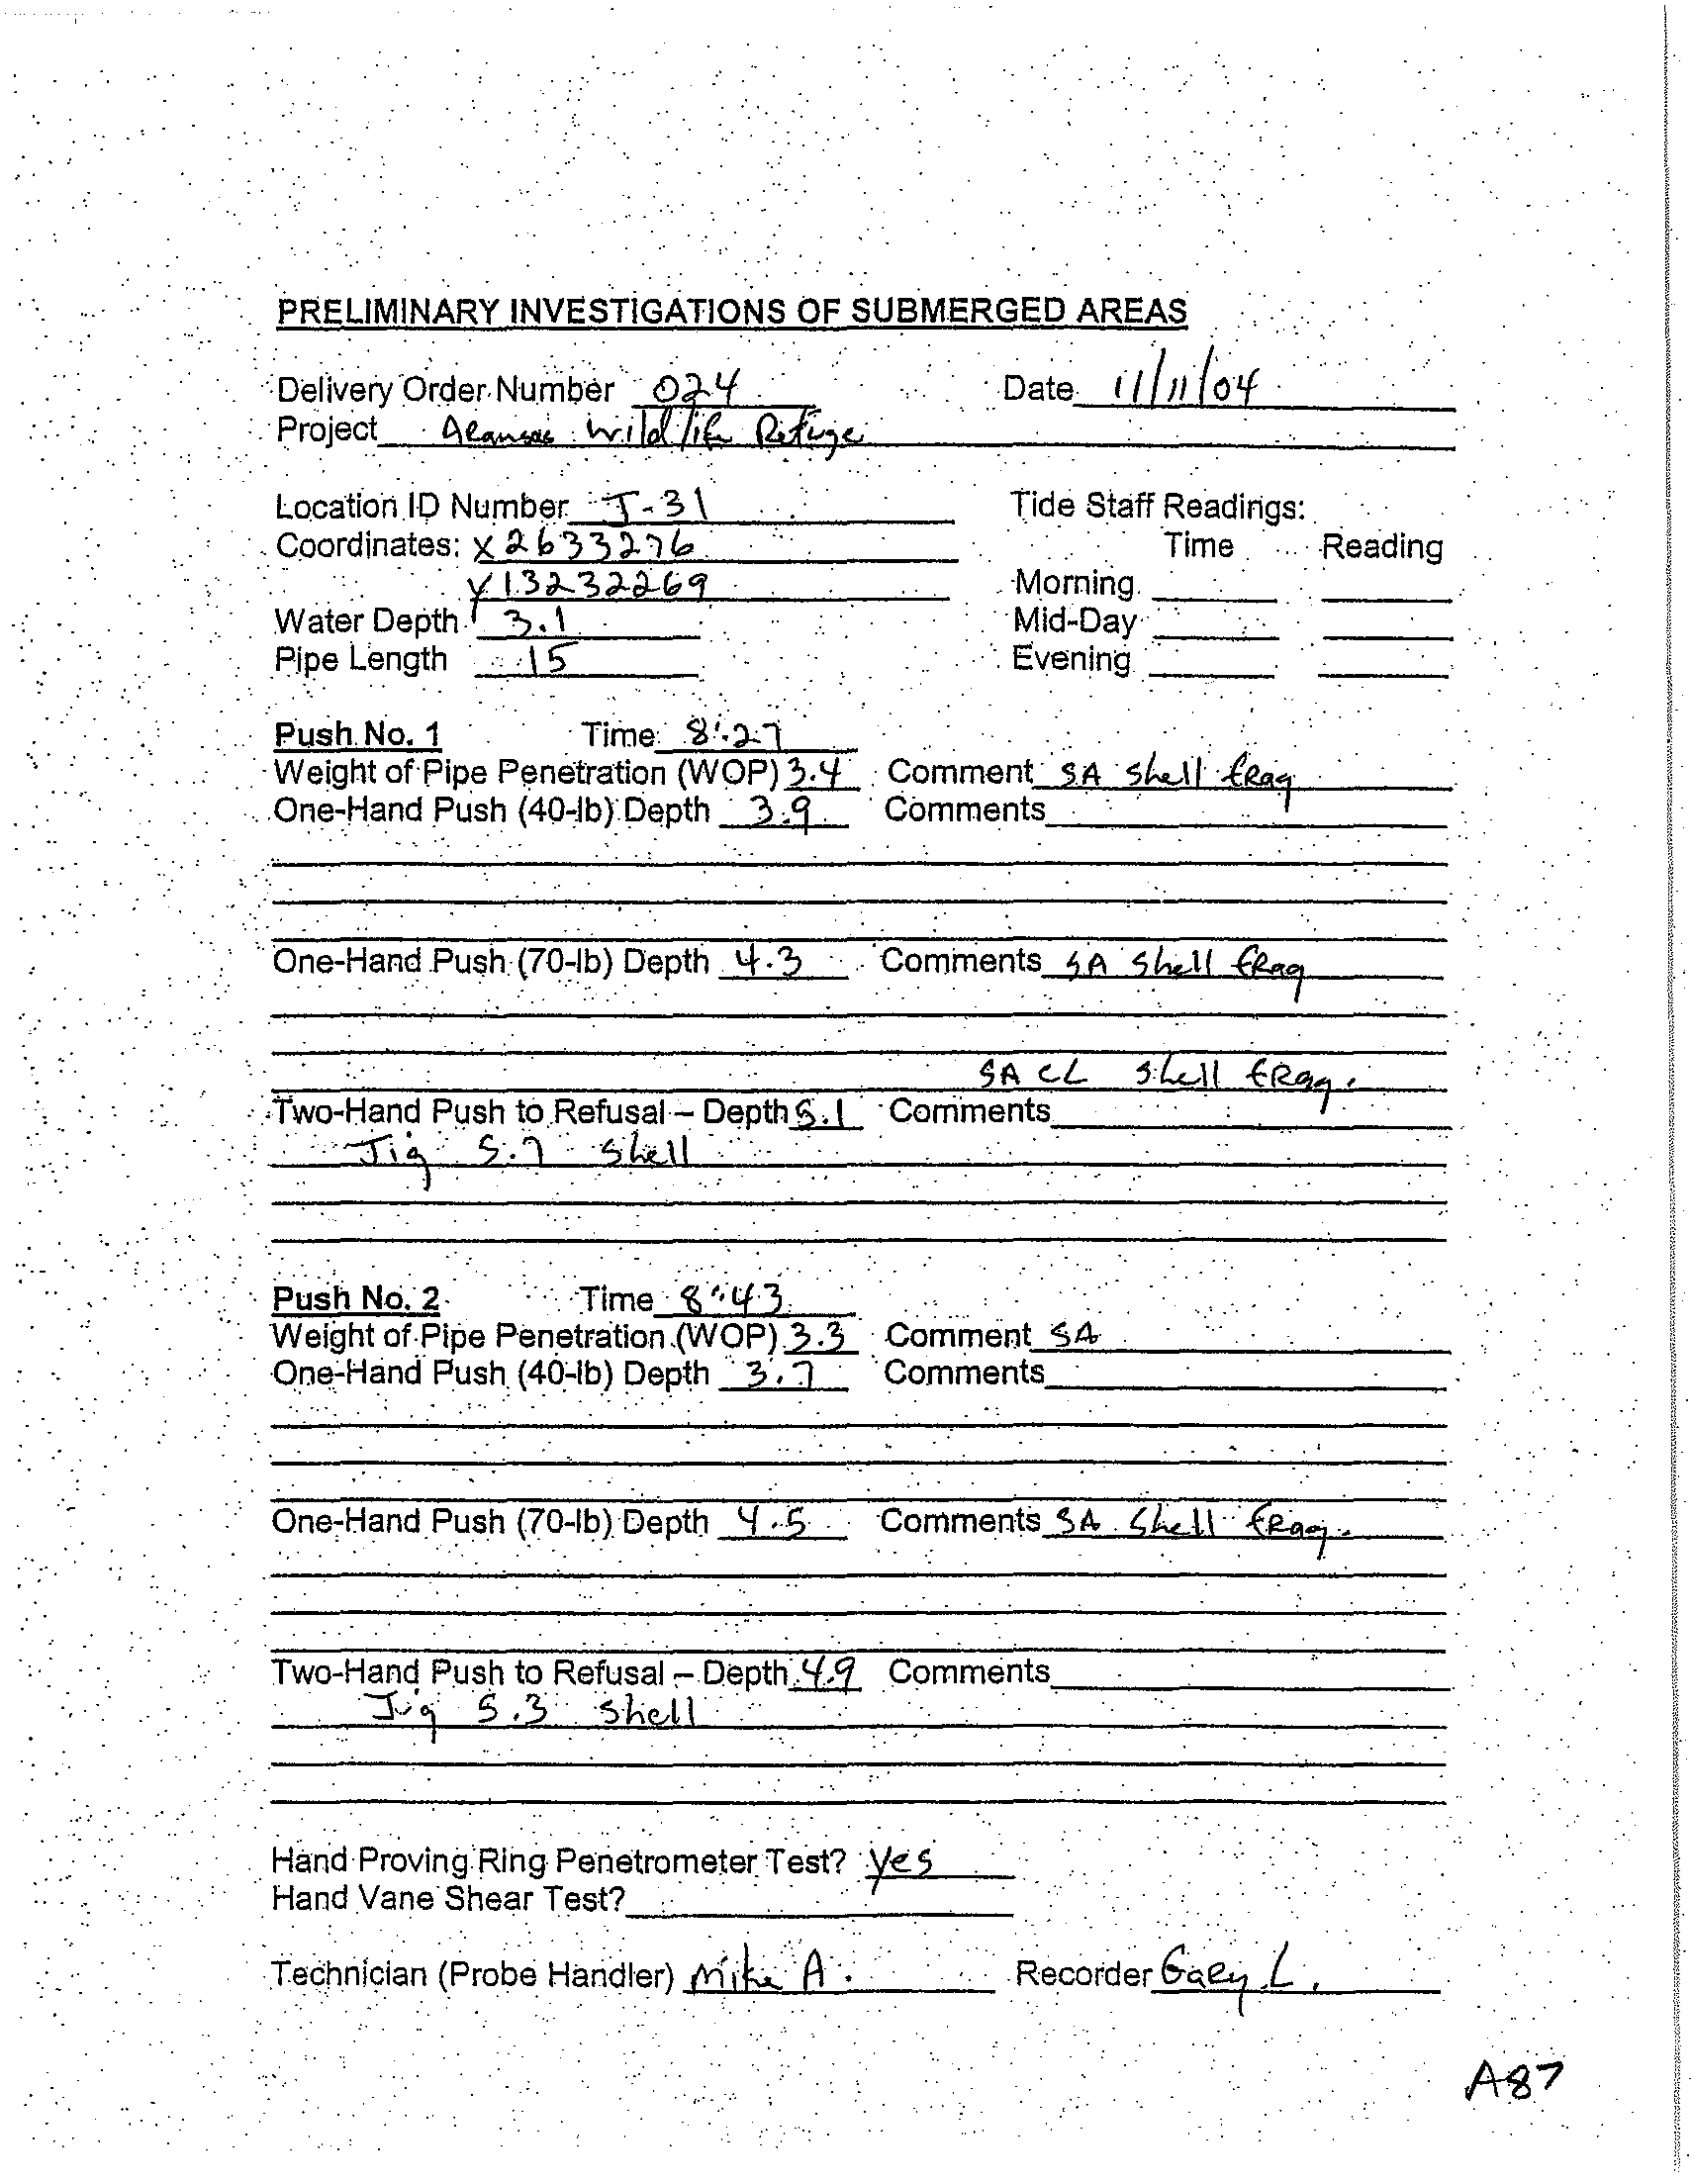 PRELIMINARY INVESTIGATIONS OF SUBMERGED AREAS
Delivery Order Number 024 Date 11/11/04
Project Aransas Wildlife Refuge
Location ID Number J-31 Tide Staff Readings:
Coordinates: X 2633276 Time Reading
Y 13232269 Morning
Water Depth 3.1 Mid-Day
Pipe Length 15 Evening
Push No. 1 Time 8:27
Weight of Pipe Penetration (WOP) 3.4 Comment SA Shell frag
One-Hand Push (40-lb) Depth 3.9 Comments
One-Hand Push (70-lb) Depth 4.3 Comments SA Shell frag
SA CL Shell frag.
Two-Hand Push to Refusal – Depth 5.1 Comments
Jig 5.7 Shell
Push No. 2 Time 8:43
Weight of Pipe Penetration (WOP) 3.3 Comment SA
One-Hand Push (40-lb) Depth 3.7 Comments
One-Hand Push (70-lb) Depth 4.5 Comments SA Shell frag.
Two-Hand Push to Refusal – Depth 4.9 Comments
Jig 5.3 Shell
Hand Proving Ring Penetrometer Test? Yes
Hand Vane Shear Test?
Technician (Probe Handler) Mike A. Recorder Gary L.
A87